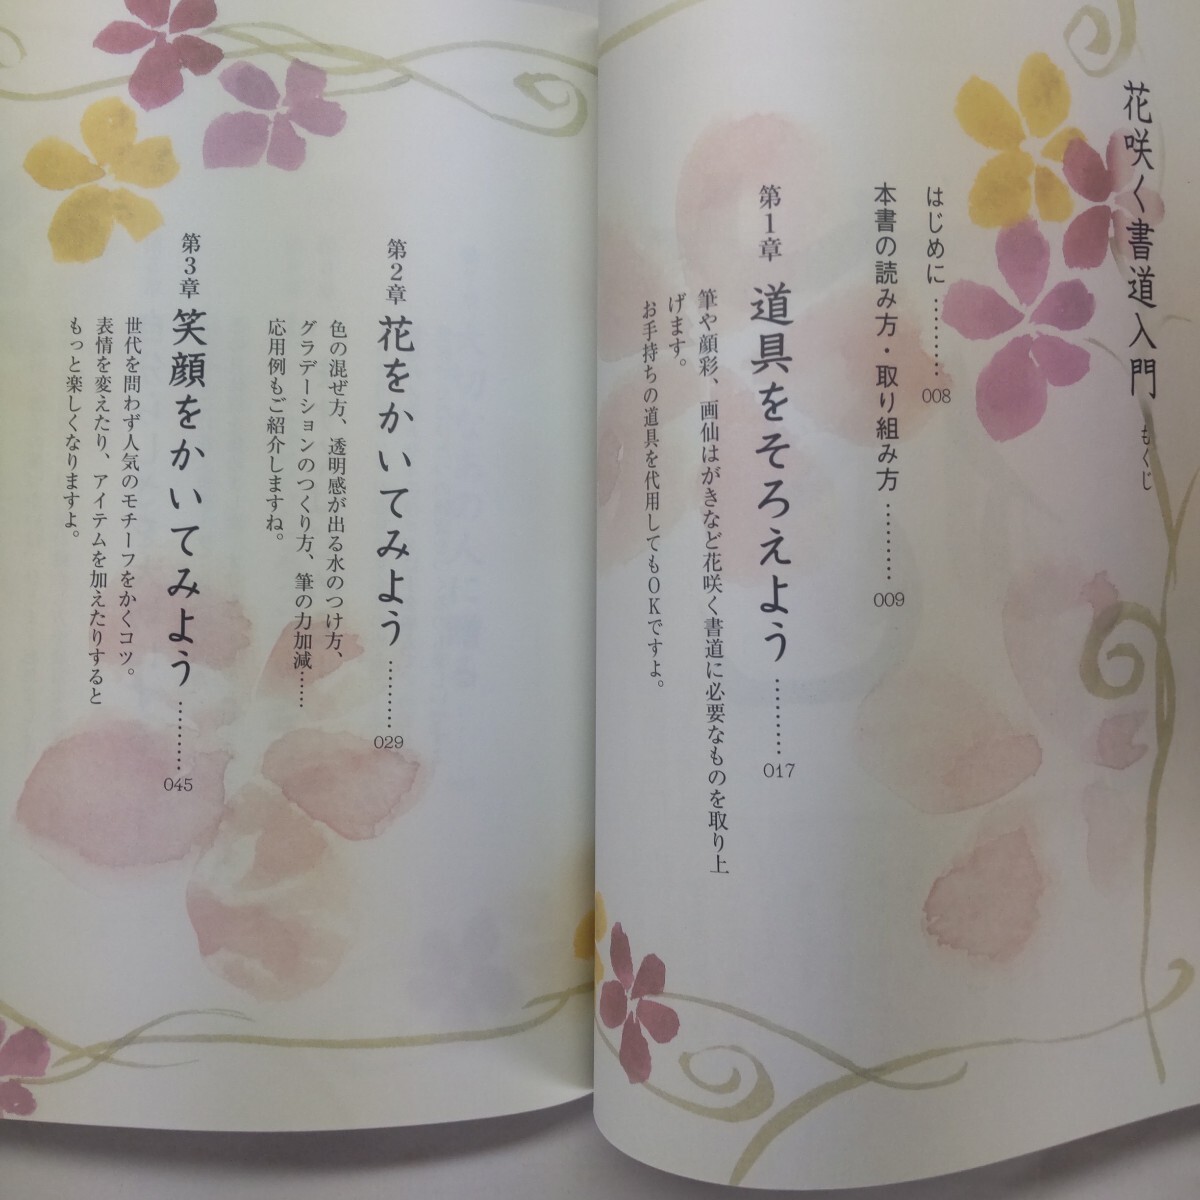 花咲く書道入門 もくじ
はじめに ………… 008
本書の読み方・取り組み方 ………… 009
第1章 道具をそろえよう ………… 017
筆や顔彩、画仙はがきなど花咲く書道に必要なものを取り上
げます。
お手持ちの道具を代用してもOKですよ。
第2章 花をかいてみよう ………… 029
色の混ぜ方、透明感が出る水のつけ方、
グラデーションのつくり方、筆の力加減……
応用例もご紹介しますね。
第3章 笑顔をかいてみよう ………… 045
世代を問わず人気のモチーフをかくコツ。
表情を変えたり、アイテムを加えたりすると
もっと楽しくなりますよ。